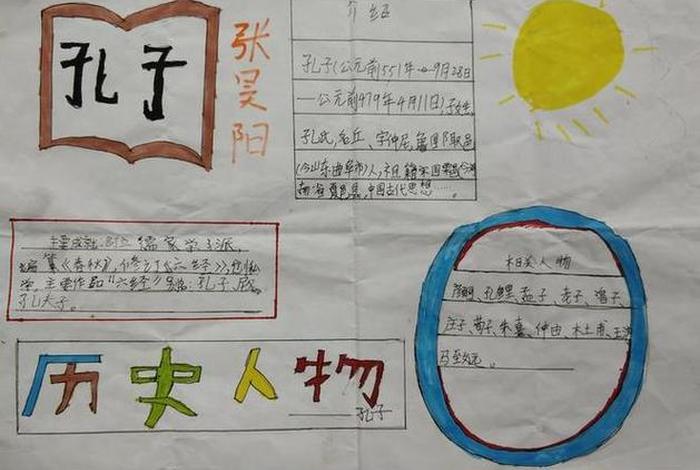 孔子
张昊阳
介绍
孔子(公元前551年 9月28日
—公元前479年4月11日),子姓,
孔氏,名丘、字仲尼,鲁国陬邑
(今山东曲阜市)人,祖籍宋国栗邑
夏邑县,中国古代思想……
主要成就: 儒家学派,
编纂《春秋》,修订《六经》,
主要作品“六经” 孔子、尼
孔夫子。
相关人物
颜回、孔鲤、孟子、老子、曾子、
庄子、荀子、朱熹、仲由、
历史人物
孔子